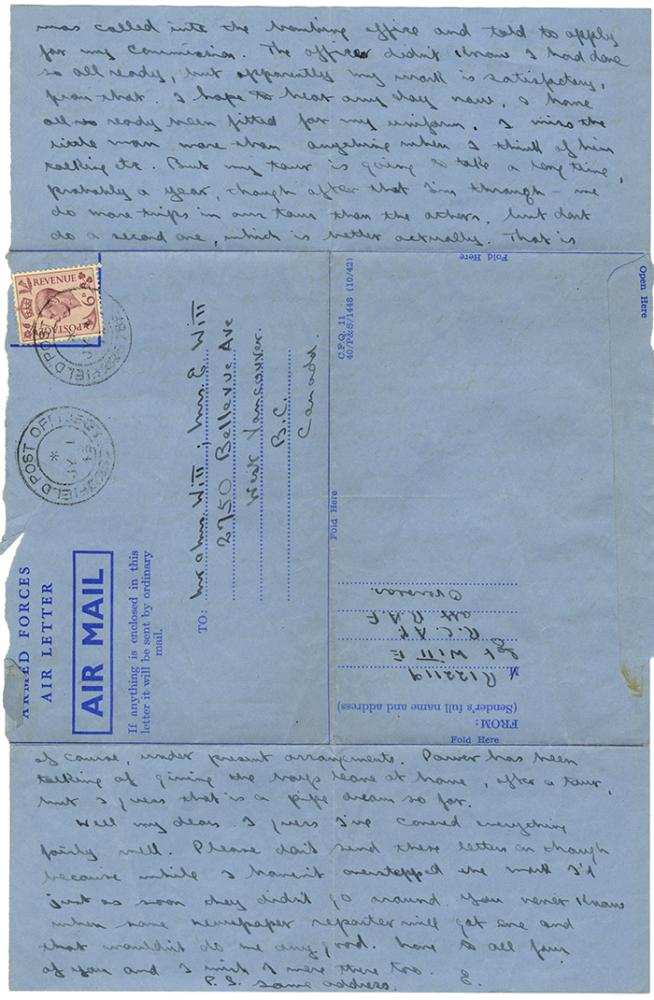 was called into the banking office and told to apply
for my Commission. The officer didn't know I had done
so all ready, but apparently my work is satisfactory,
from that. I hope to hear any day now, & have
all so ready been fitted for my uniform. I miss the
little man more than anything when I think of him
talking etc. But my tour is going to take a long time,
probably a year, though after that I'm through - we
do more trips in our tour than the others, but don't
do a second one, which is better actually. That is
Fold Here
Open Here
REVENUE
POSTAGE
FIELD POST OFFICE
FIELD POST OFFICE
JY 1
C.F.Q. 11
40/P&S/1448 (10/42)
ARMED FORCES
AIR LETTER
AIR MAIL
If anything is enclosed in this
letter it will be sent by ordinary
mail.
TO: Will; Mrs E Will
2750 Bellevue Ave
West Vancouver.
B.C.
Canada.
Fold Here
Fold Here
FROM:
(Sender's full name and address)
R122119
Sgt Will E
R.C.A.F.
att R.A.F
Overseas
of course, under present arrangements. Power has been
talking of giving the boys leave at home, after a tour,
but I guess that is a pipe dream so far.
Well my dears I guess I've covered everything
fairly well. Please don't send these letters on though
because while I haven't overstepped the mark I'd
just as soon they didn't go around. You never know
when some newspaper reporter will get one and
that wouldn't do me any good. Love to all four
of you and I wish I were there too. E.
P.S. same address.